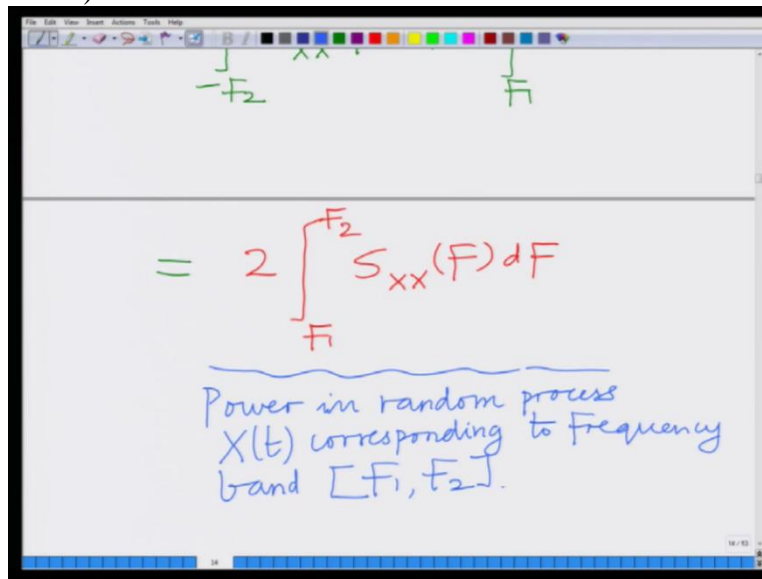 )
File Edit View Insert Actions Tools Help
B I
XX
-F2 F1
= 2 ∫ F2 F1 SXX(F) dF
Power in random process
X(t) corresponding to Frequency
band [F1, F2].
14 / 53
14